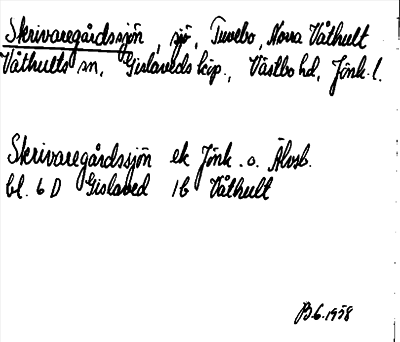 Skrivaregårdssjön, sjö, Tunebo, Norra Våthult
Våthults sn, Gislaveds köp., Västbo hd, Jönk. l.
Skrivaregårdssjön ek Jönk. o. Älvsb.
bl. 6 D Gislaved 1b Våthult
BG. 1958